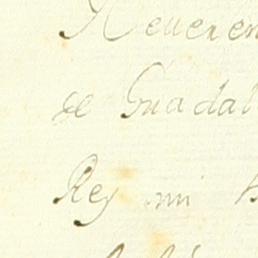 Reveren
de Guadal
Rey mi